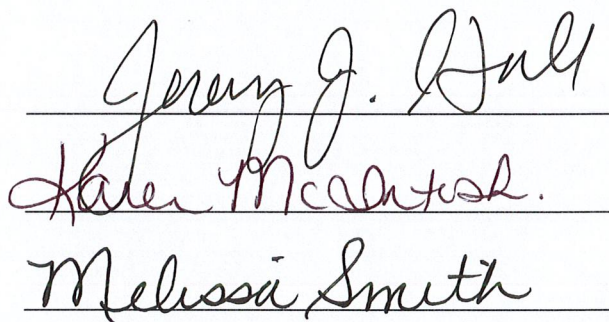 Jeremy J. Hall
Karen McIntosh.
Melissa Smith